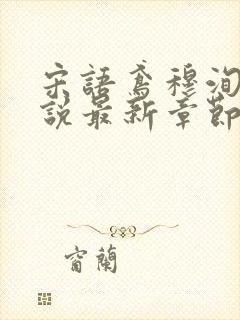 宋語鳶穆洵
說最新章節
窗蘭